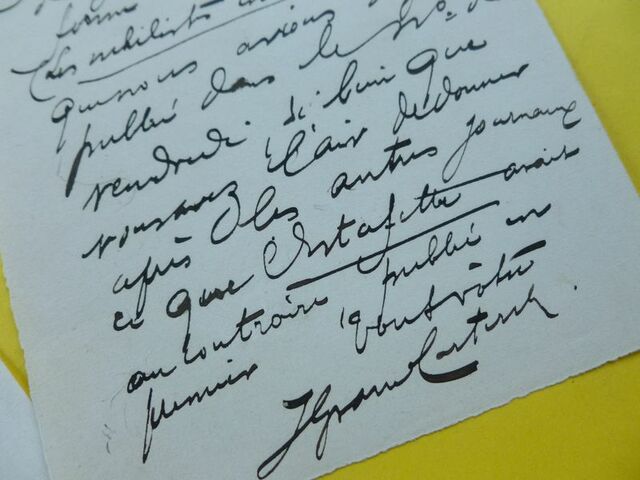 forme
Les nihilistes
que nous avions
publié dans le No. d
vendredi si bien que
vous avez l'air de donner
après les autres journaux
ce que l'Estafette avait
au contraire publié en
premier
bout vôtre
JGrand Carteret.